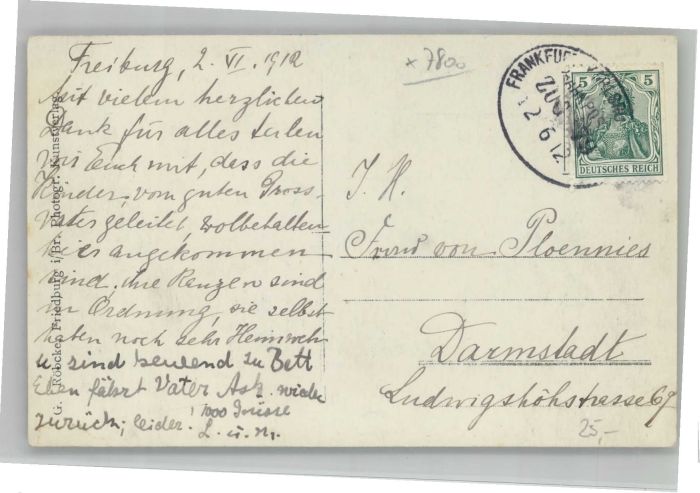 Freiburg, 2. VI. 1912
Mit vielem herzlichen
Dank für alles teilen
wir Euch mit, dass die
Kinder, vom guten Gross-
vater geleitet, wolbehalten
hier angekommen
sind, ihre Ranzen sind
in Ordnung, sie selbst
haben noch sehr Heimweh
u. sind heulend zu Bett
Eben fährt Vater wieder
zurück, leider. 1000 Grüsse
L. u. M.
x 7800
FRANKFURT
ZUG
2 6 12
5 5
DEUTSCHES REICH
I. H.
Frau von Ploennies
Darmstadt
Ludwigshöhstrasse 67
25,-
G. Röbcke, Friedburg i/Br. Photogr. Kunstverlag.